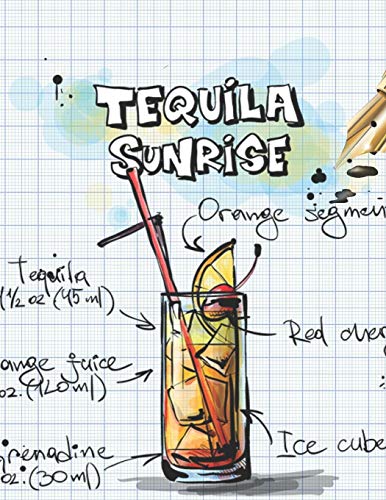 TEQUILA
SUNRISE
Orange segmen
Tequila
1/2 oz (45 ml)
Red cher
ange juice
oz. (120 ml)
Grenadine
oz. (30 ml)
Ice cube